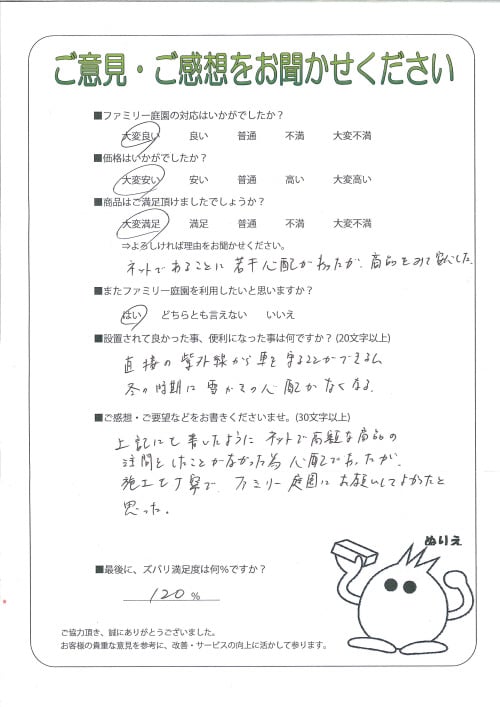 ご意見・ご感想をお聞かせください
■ファミリー庭園の対応はいかがでしたか？
大変良い 良い 普通 不満 大変不満
■価格はいかがでしたか？
大変安い 安い 普通 高い 大変高い
■商品はご満足頂けましたでしょうか？
大変満足 満足 普通 不満 大変不満
⇒よろしければ理由をお聞かせください。
ネットであることに若干心配があったが、商品をみて安心した。
■またファミリー庭園を利用したいと思いますか？
はい どちらとも言えない いいえ
■設置されて良かった事、便利になった事は何ですか？(20文字以上)
直接の紫外線から車を守ることができるし
冬の時期に雪かきの心配がなくなる。
■ご感想・ご要望などをお書きくださいませ。(30文字以上)
上記にも書いたようにネットで高額な商品の
注閗をしたことがなかった為心配であったが、
施工も丁寧で、ファミリー庭園にお願いしてよかったと
思った。
ぬりえ
■最後に、ズバリ満足度は何％ですか？
120 %
ご協力頂き、誠にありがとうございました。
お客様の貴重な意見を参考に、改善・サービスの向上に活かして参ります。